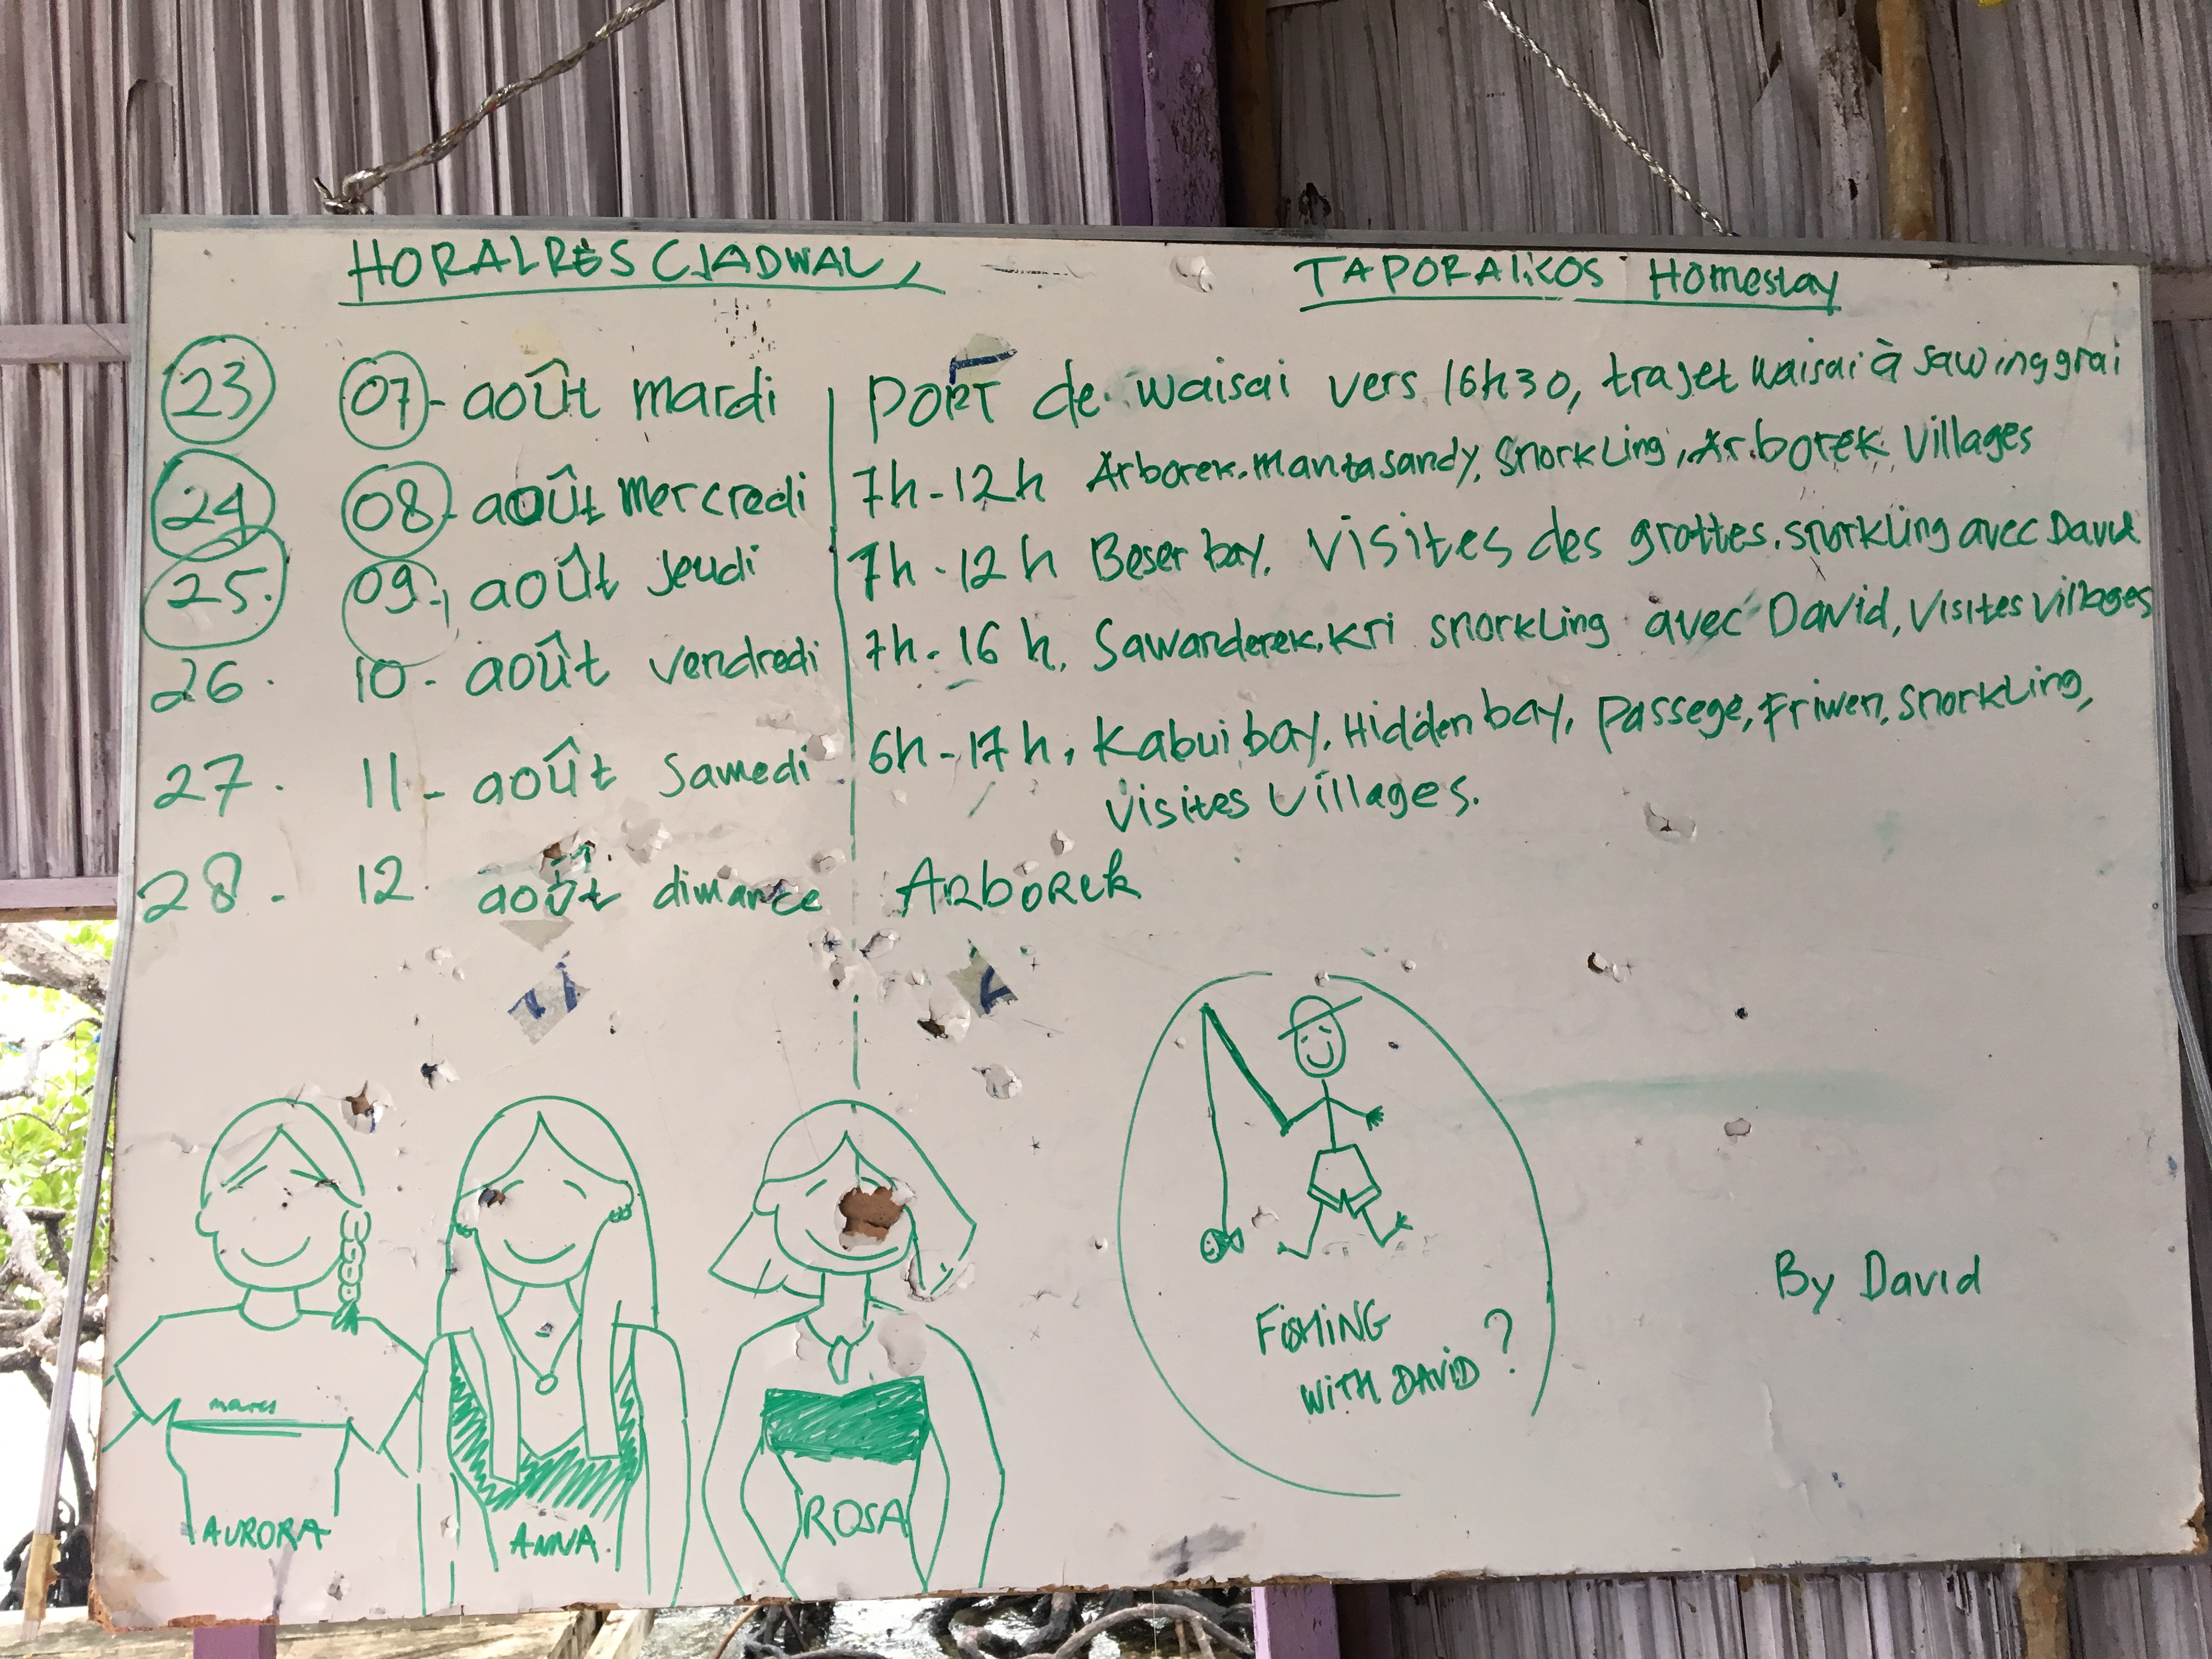 HORALRES CJADWAL,
TAPORALIKOS Homestay
23 07 - août mardi PORT de waisai vers 16h30, trajet waisai à sawinggrai
24 08 - août mercredi 7h-12h Arborek. mantasandy, snorkling, Arborek villages
25. 09, août jeudi 7h-12h Beser bay. Visites des grottes. snorkling avec David
26. 10 - août vendredi 7h-16h, Sawanderek, Kri snorkling avec David, visites villages
27. 11 - août samedi 6h-17h, Kabui bay, Hidden bay, passege, Friwen, snorkling,
visites villages.
28. 12 août dimance ARBOREK
FISHING
WITH DAVID?
By David
mares
AURORA
ANNA.
ROSA